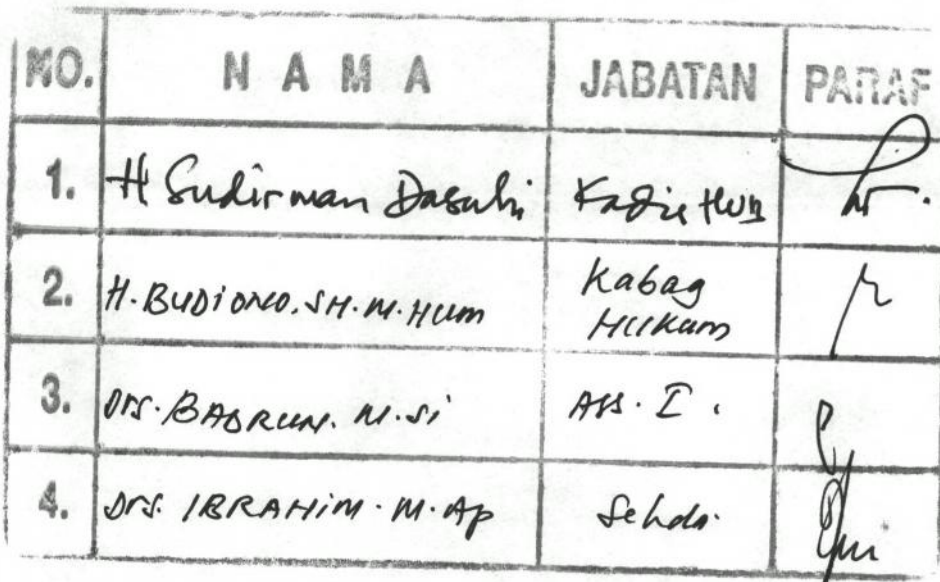 NO. N A M A JABATAN PARAF
1. H Sudirman Dasuki
2. H. BUDIONO. SH. M. HUM Kabag
HUKUM
3. Drs. BADRUN. M. Si ASS. I.
4. Drs. IBRAHIM. M. AP Sekda.